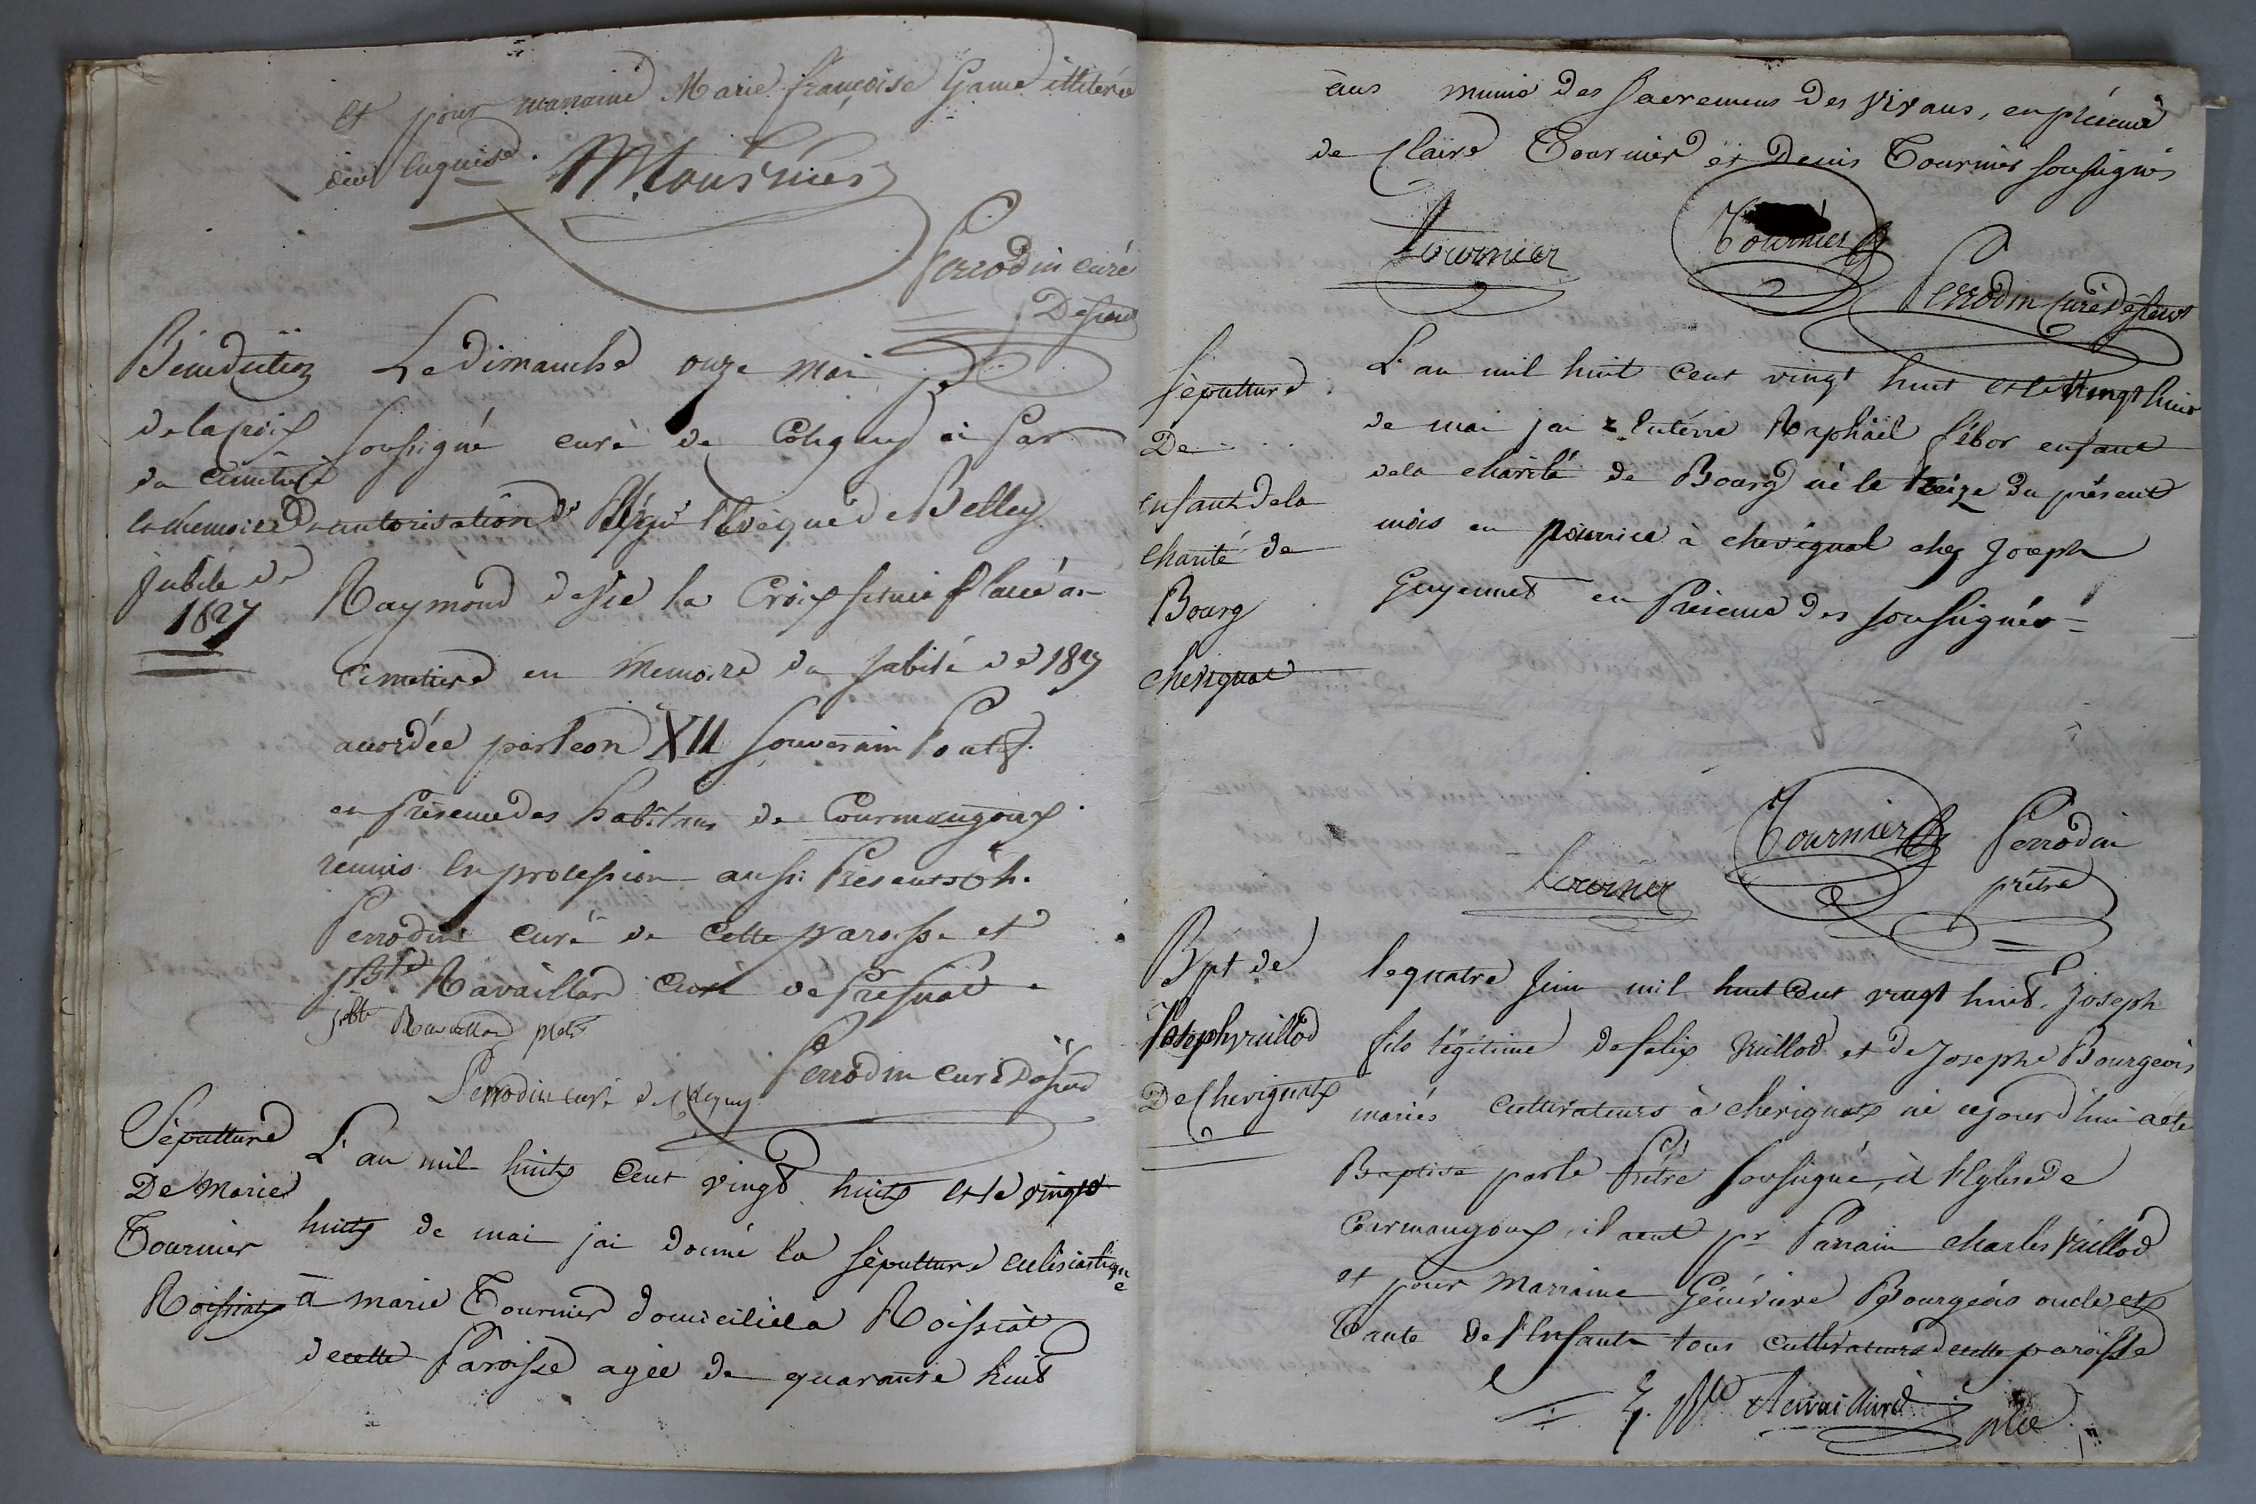 et pour marraine Marie françoise Game illitéré
dui
Mousnier
Perrodin curé
Bénédiction
de la Croix
du Cimetiere
en Memoire du
jubilé de
1827
Le dimanche onze Mai je
soussigné curé de Coligny ai par
autorisation de l'Evèque de Belley
Raymond devie la Croix placé au
Cimetiere en Memoire du Jubilé de 1827
accordée par Leon XII Souverain Pontif.
en présence des habitans de Courmangoux
réunis en procession aussi Présents
Perrodin curé de cette paroisse et
Ravaillard Curé de Présiat
Ravaillard
Perrodin curé
Perrodin curé de Coligny
Sépulture
De Marie
Tournier
Roissiat
L'an mil huit cent vingt huit et le vingt
huit de mai jai donné la Sépulture eclésiastique
à marie Tournier domiciliée à Roissiat
de cette Paroisse agée de quarante huit
ans munie des Sacremens des vivans, en présence
de Claire Tournier et Denis Tournier soussignés
Tournier
Tournier
Perrodin Curé
Sépulture
De
enfant de la
Charité de
Bourg
Chevignat
L'an mil huit cent vingt huit et le vingt huit
de mai jai Enterré Raphaël Sébor enfant
de la charité de Bourg né le treize du présent
mois en nourrice à chevignat chez Joseph
Guyennet en Présence des soussignés
Tournier
Tournier
Perrodin
prêtre
Bpt de
Joseph vuillod
De Chevignat
le quatre Juin mil huit Cent vingt huit. Joseph
fils légitime de félix vuillod et de Josephe Bourgeois
mariés Cultivateurs à chevignat né ce jourd'hui a été
Baptisé par le Prêtre soussigné, à l'Eglise de
Courmangoux, il a eut pr Parrain charles vuillod
et pour Marraine Généviève Bourgeois oncle et
Tante de l'Enfant tous cultivateurs de cette paroisse
Ravaillard ptre